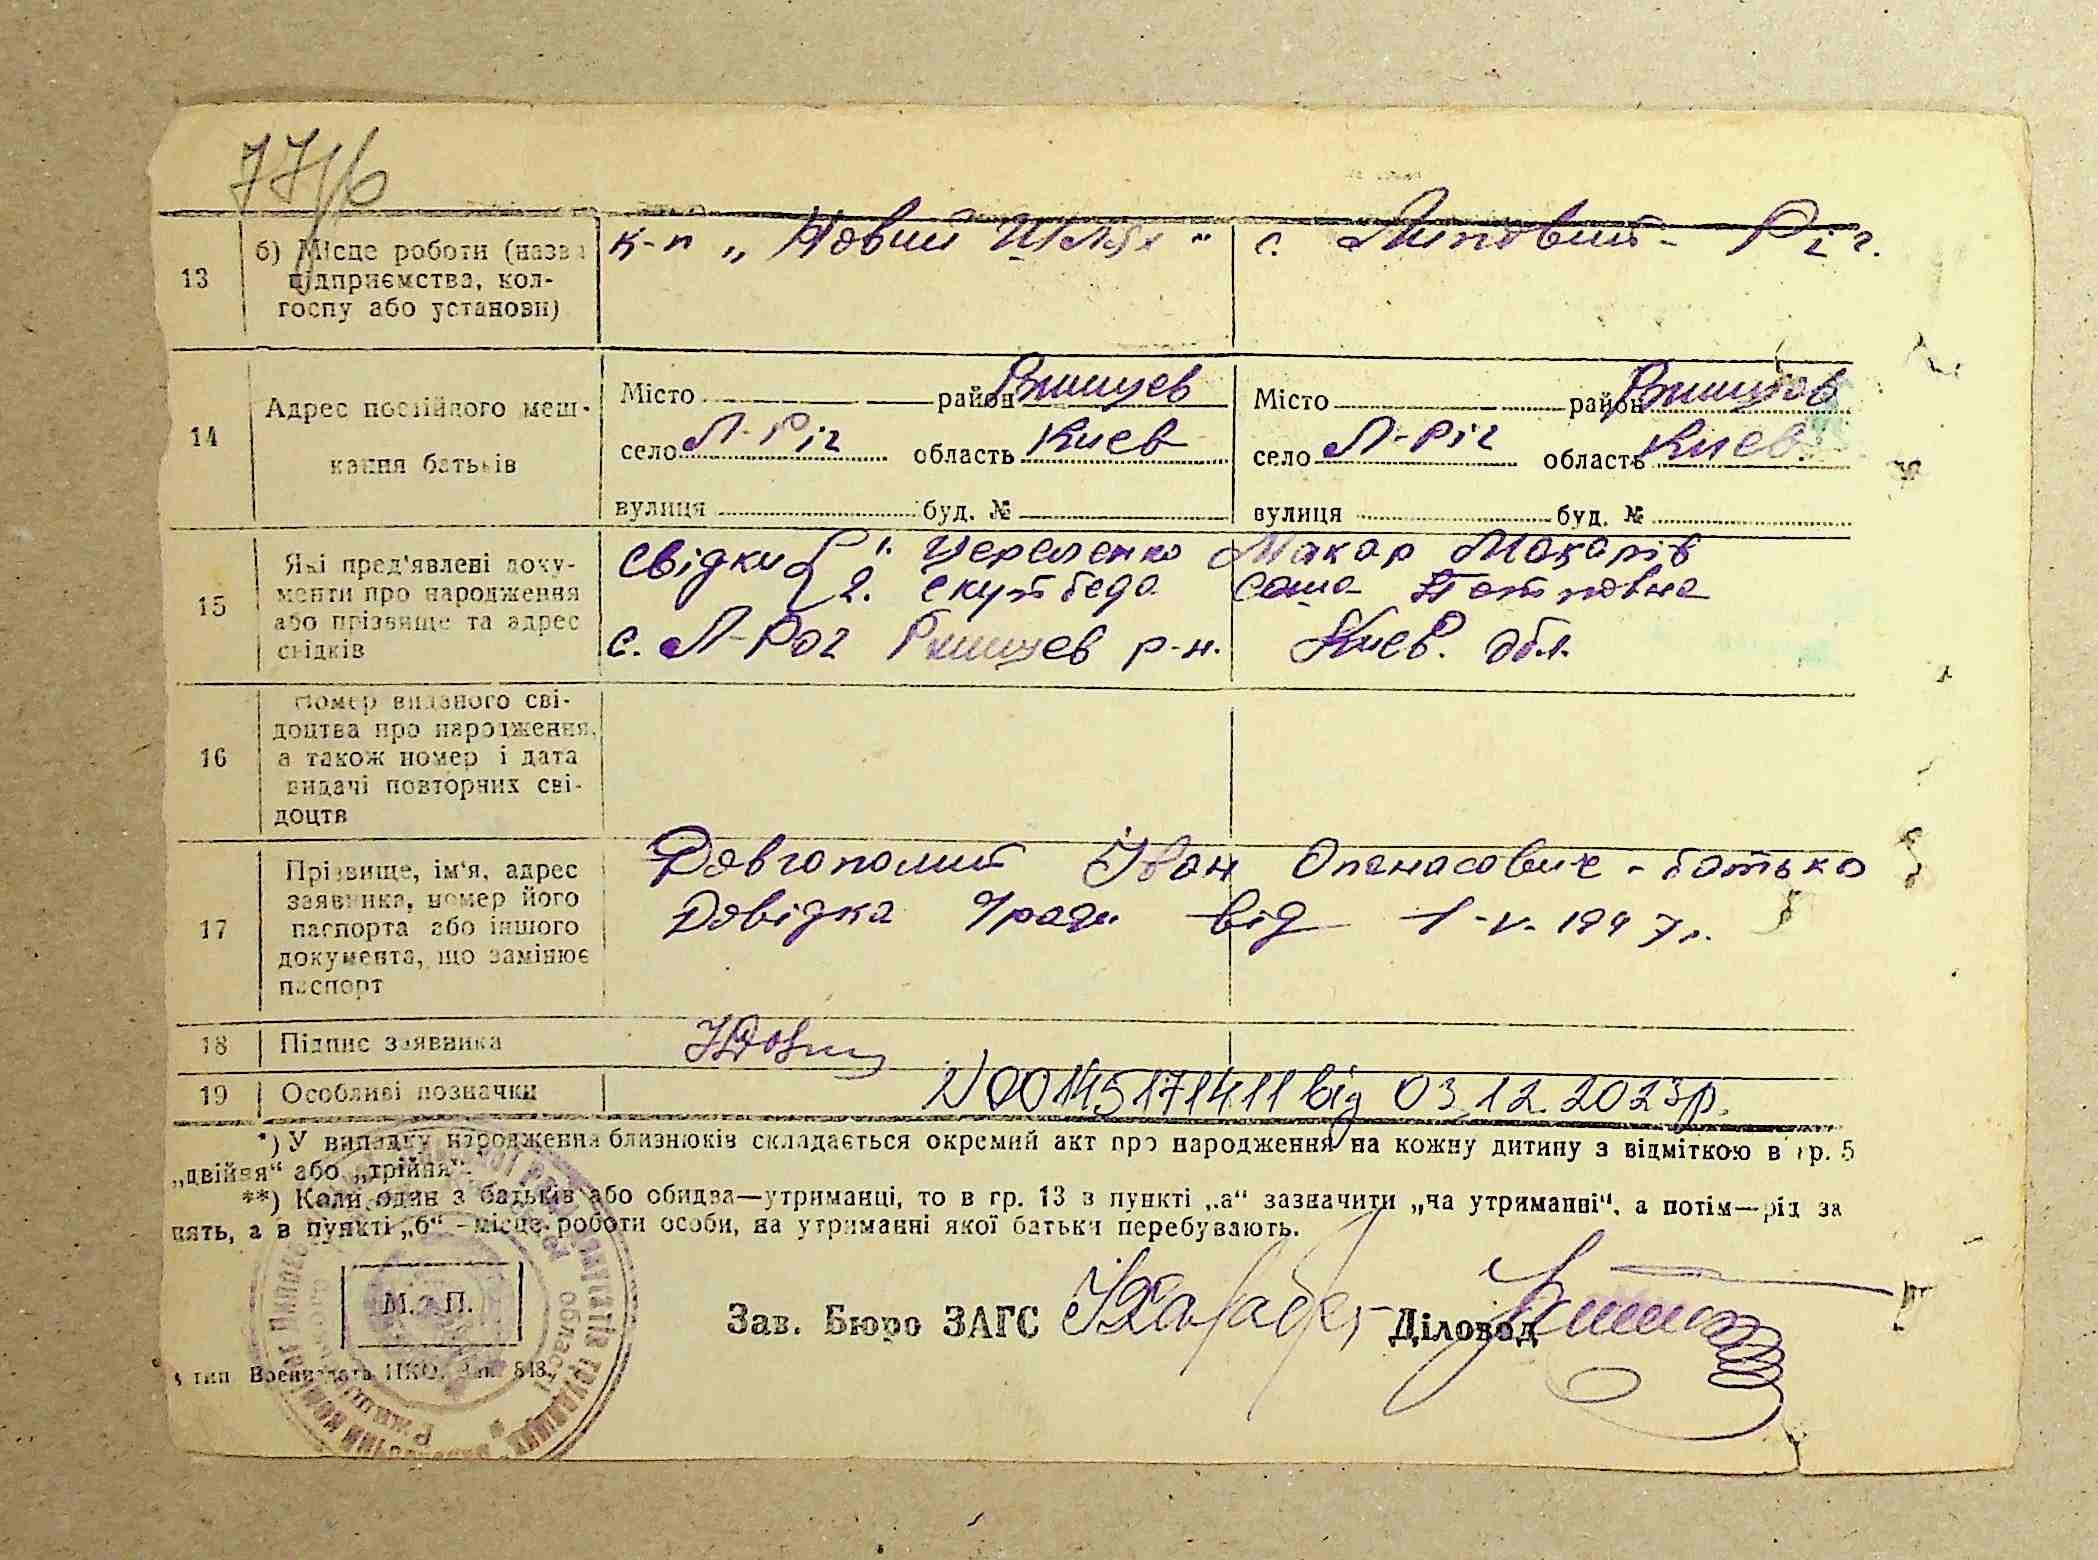 77/6
13 б) Місце роботи (назва підприємства, колгоспу або установи) к-п „Новий Шлях" с. Липовий-Ріг.
14 Адрес постійного мешкання батьків
Місто район Ржищев Місто район Ржищев
село Л-Ріг область Киев село Л-Ріг область Киев.
вулиця буд. № вулиця буд. №
15 Які пред'явлені документи про народження або прізвище та адрес свідків
свідки 1. Макар Макарів
2. скутбеда Саша
с. Л-Рог Ржищев р-н. Киев. обл.
16 Номер виданого свідоцтва про народження, а також номер і дата видачі повторних свідоцтв
17 Прізвище, ім'я, адрес заявника, номер його паспорта або іншого документа, що замінює паспорт
Довгополий Іван Опанасович - батько
Довідка від 1-V-1947 р.
18 Підпис заявника
19 Особливі позначки N 00145171411 від 03.12.2023р.
*) У випадку народження близнюків складається окремий акт про народження на кожну дитину з відміткою в гр. 5
„двійня“ або „трійня“.
**) Коли один з батьків або обидва—утриманці, то в гр. 13 в пункті „а“ зазначити „на утриманні“, а потім—рід за
нять, а в пункті „б“ - місце роботи особи, на утриманні якої батьки перебувають.
М. П.
Зав. Бюро ЗАГС Діловод
тип Воениздата НКО. Зак. 843.